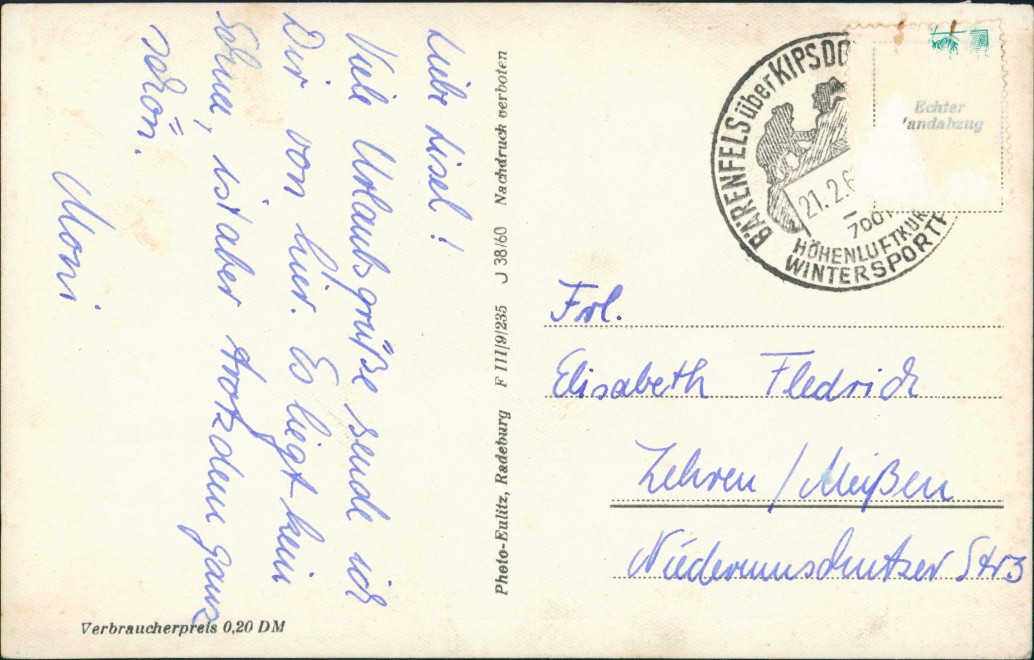 Liebe Lisel!
Viele Urlaubsgrüße sende ich
Dir von hier. Es liegt kein
Schnee, ist aber trotzdem ganz
schön.
Moni
Verbraucherpreis 0,20 DM
Photo-Eulitz, Radeburg F III/9/235 J 38/60 Nachdruck verboten
BÄRENFELS über KIPSDO
21.2.6
700
HÖHENLUFTKUR
WINTERSPORT
Echter
andabzug
Frl.
Elisabeth Fledrich
Zehren / Meißen
Str 3